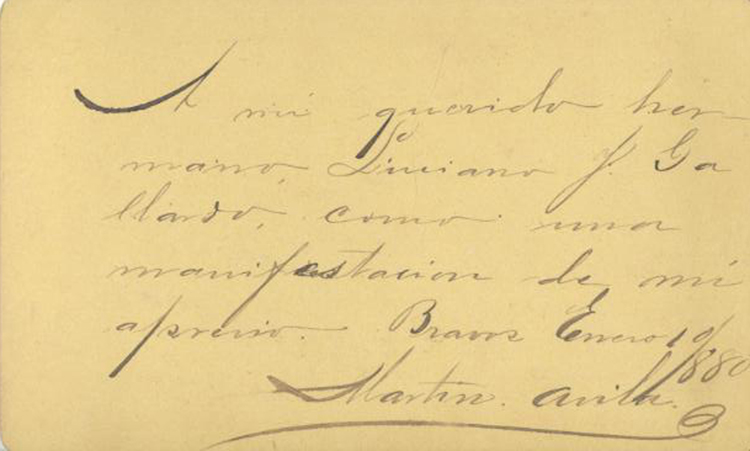 A mi querido her-
mano, Luciano J. Ga
llardo, como una
manifestacion de mi
aprecio. Bravos Enero 10/
1880
Martin. Avila.